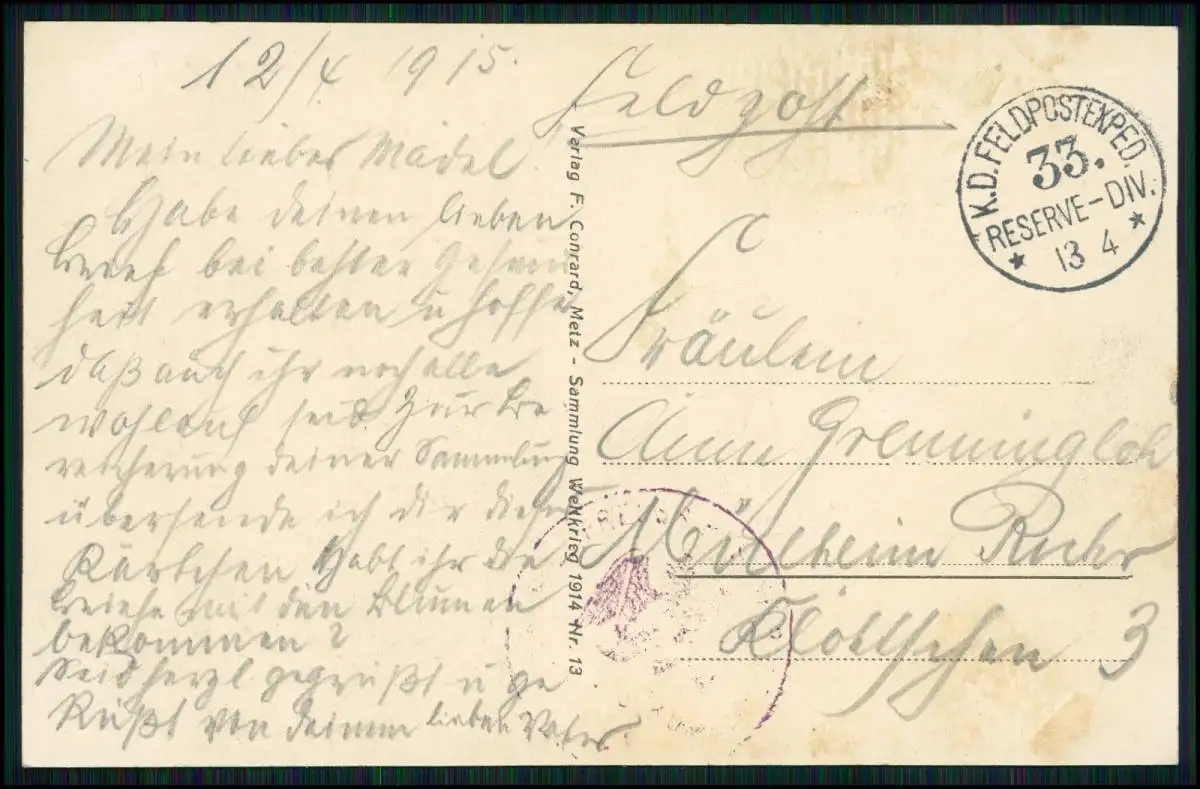 12/4 1915.
Mein liebes Mädel
Habe deinen lieben
Brief bei bester Gesund
heit erhalten u hoffe
daß auch ihr noch alle
wohlauf seid. Zur Be
reicherung deiner Sammlung
übersende ich dir dieses
Kärtchen Habt ihr die
Briefe mit den Blumen
bekommen?
Seid herzl gegrüßt u ge
küßt von deinem lieben Vater.
Verlag F. Conrard, Metz - Sammlung Weltkrieg 1914 Nr. 13
Feldpost
K.D. FELDPOSTEXPED.
33.
RESERVE-DIV.
* 13 4 *
Fräulein
Änne Grenningloh
Mülheim Ruhr
Klöttschen 3